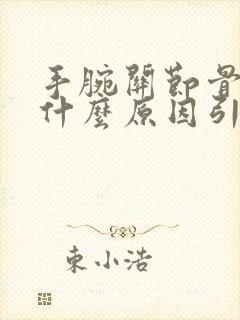 手腕關節骨
什麼原因引
東小浩